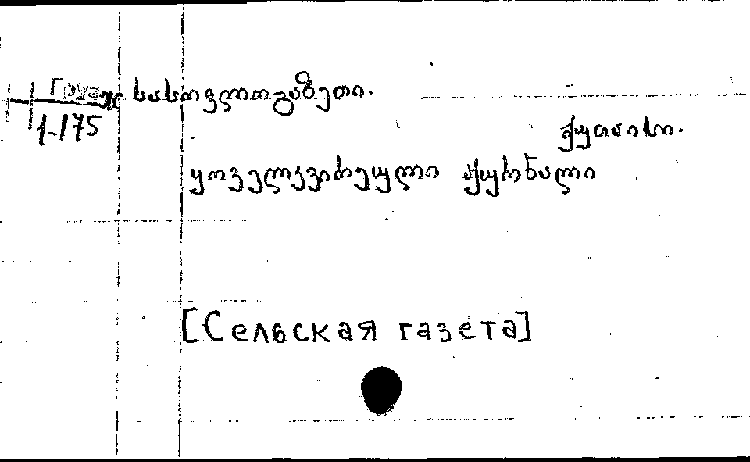 სასოფლო გაზეთი.
1-175
ქუთაისი.
ყოველკვირეული ჟურნალი
[Сельская газета]